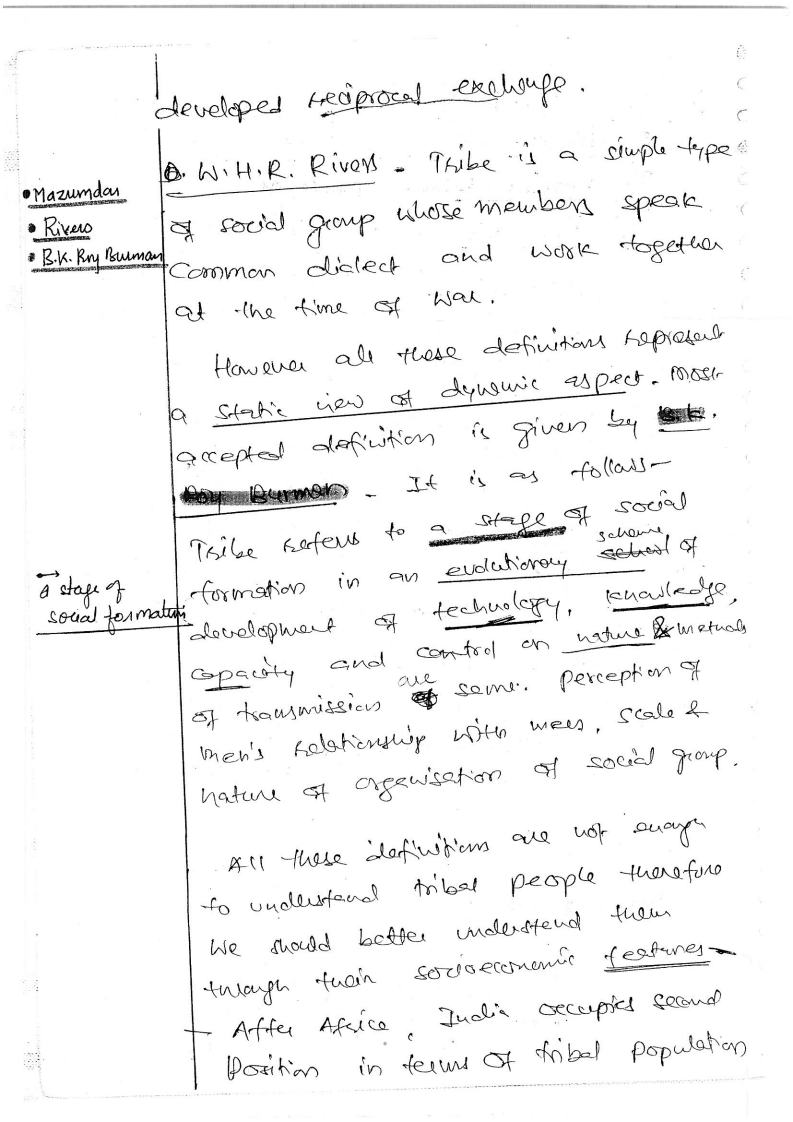 developed reciprocal exchange.
W.H.R. Rivers - Tribe is a simple type
of social group whose members speak
Common dialect and work together
at the time of war.
• Mazumdar
• Rivers
• B.K. Roy Burman
However all these definitions represent
a static view of dynamic aspect. Most
accepted definition is given by B.K.
Roy Burman - It is as follows -
Tribe refers to a stage of social
formation in an evolutionary scheme of
development of technology, knowledge,
capacity and control on nature & methods
of transmission are same. Perception of
men's relationship with men, scale &
nature of organisation of social group.
↔
a stage of
social formation
All these definitions are not enough
to understand tribal people therefore
we should better understand them
through their socioeconomic features -
- After Africa, India occupies second
Position in terms of tribal population